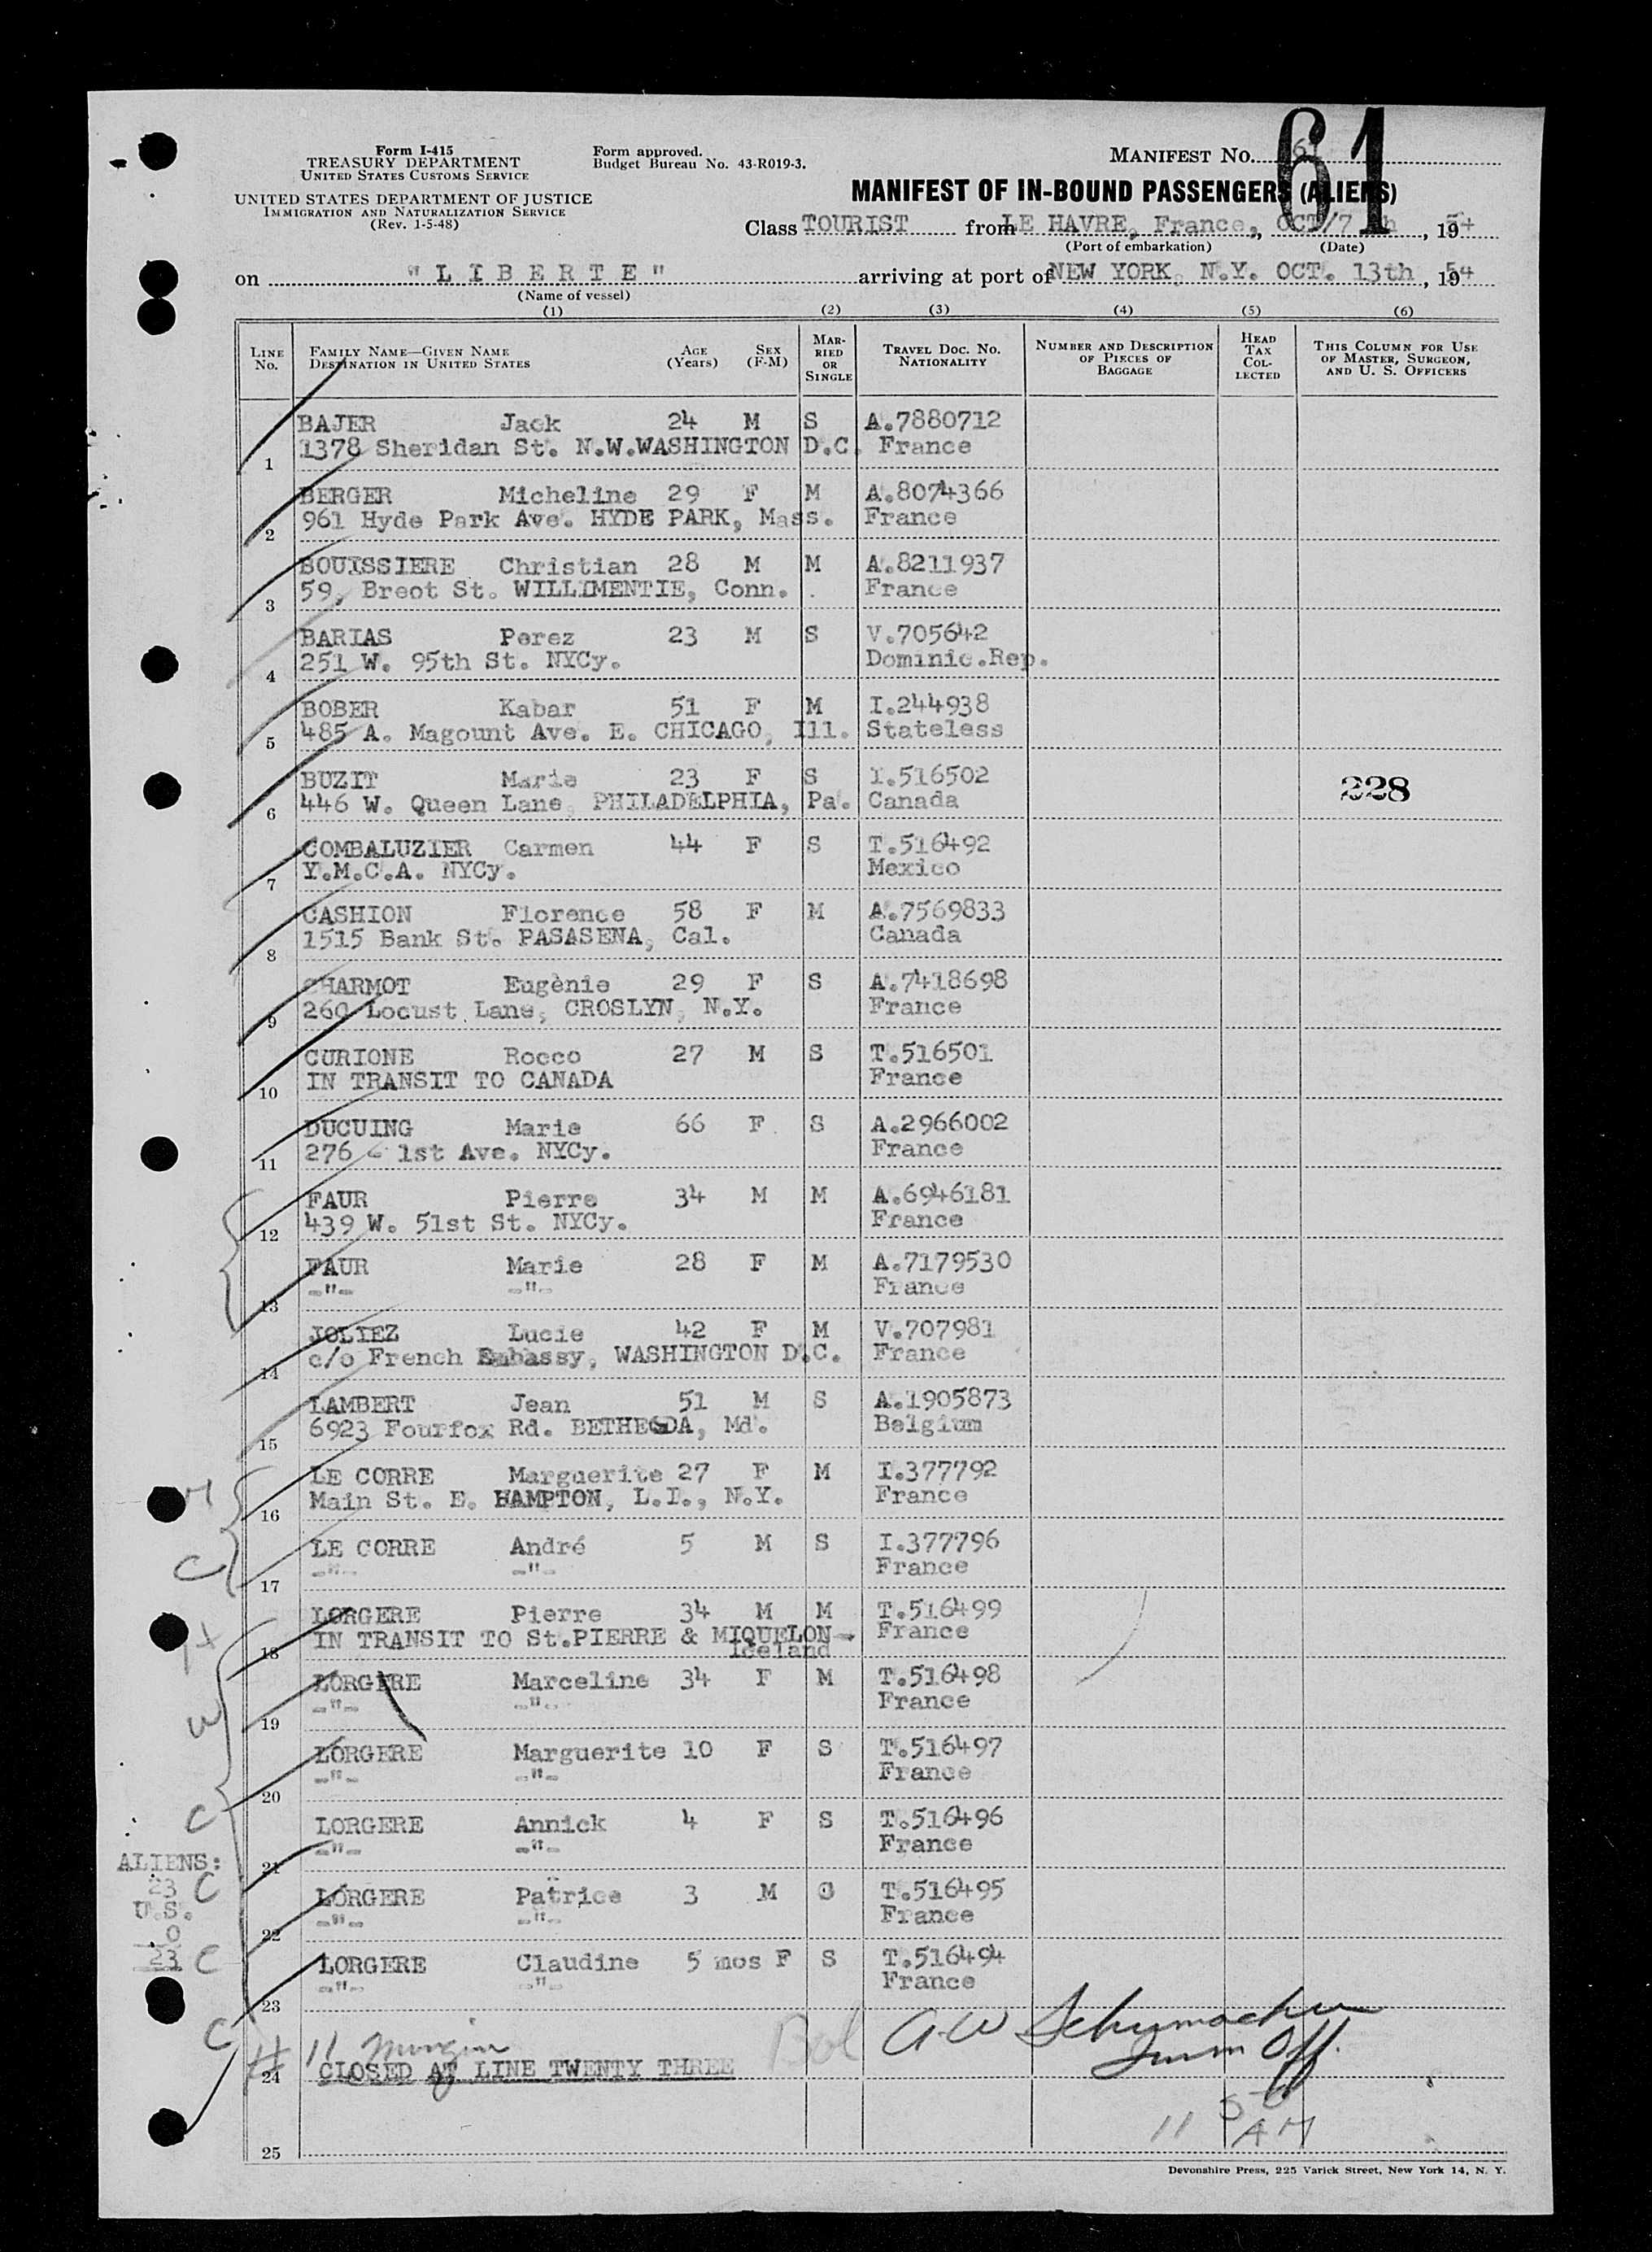 Form I-415
TREASURY DEPARTMENT
UNITED STATES CUSTOMS SERVICE
UNITED STATES DEPARTMENT OF JUSTICE
IMMIGRATION AND NATURALIZATION SERVICE
(Rev. 1-5-48)
Form approved.
Budget Bureau No. 43-R019-3.
MANIFEST No. 61
61
MANIFEST OF IN-BOUND PASSENGERS (ALIENS)
Class TOURIST from LE HAVRE, France, OCT/7 th, 1954
(Port of embarkation) (Date)
on "LIBERTE" arriving at port of NEW YORK, N.Y. OCT. 13th, 1954
(Name of vessel)
(1) (2) (3) (4) (5) (6)
LINE No. FAMILY NAME—GIVEN NAME DESTINATION IN UNITED STATES AGE (Years) SEX (F-M) MARRIED OR SINGLE TRAVEL DOC. No. NATIONALITY NUMBER AND DESCRIPTION OF PIECES OF BAGGAGE HEAD TAX COLLECTED THIS COLUMN FOR USE OF MASTER, SURGEON, AND U. S. OFFICERS
1 BAJER Jack 24 M S A.7880712
1378 Sheridan St. N.W.WASHINGTON D.C. France
2 BERGER Micheline 29 F M A.8074366
961 Hyde Park Ave. HYDE PARK, Mass. France
3 BOUISSIERE Christian 28 M M A.8211937
59, Breot St. WILLIMENTIE, Conn. France
4 BARIAS Perez 23 M S V.705642
251 W. 95th St. NYCy. Dominic.Rep.
5 BOBER Kabar 51 F M I.244938
485 A. Magount Ave. E. CHICAGO, Ill. Stateless
6 BUZIT Marie 23 F S I.516502
446 W. Queen Lane, PHILADELPHIA, Pa. Canada
228
7 COMBALUZIER Carmen 44 F S T.516492
Y.M.C.A. NYCy. Mexico
8 CASHION Florence 58 F M A.7569833
1515 Bank St. PASASENA, Cal. Canada
9 CHARMOT Eugènie 29 F S A.7418698
260 Locust Lane, CROSLYN, N.Y. France
10 CURIONE Rocco 27 M S T.516501
IN TRANSIT TO CANADA France
11 DUCUING Marie 66 F S A.2966002
276 - 1st Ave. NYCy. France
12 FAUR Pierre 34 M M A.6946181
439 W. 51st St. NYCy. France
13 FAUR Marie 28 F M A.7179530
-"- -"- France
14 JOLIEZ Lucie 42 F M V.707981
c/o French Embassy, WASHINGTON D.C. France
15 LAMBERT Jean 51 M S A.1905873
6923 Fourfox Rd. BETHESDA, Md. Belgium
16 LE CORRE Marguerite 27 F M I.377792
Main St. E. HAMPTON, L.I., N.Y. France
17 LE CORRE André 5 M S I.377796
-"- -"- France
18 LORGERE Pierre 34 M M T.516499
IN TRANSIT TO St.PIERRE & MIQUELON- France
Iceland
19 LORGERE Marceline 34 F M T.516498
-"- -"- France
20 LORGERE Marguerite 10 F S T.516497
-"- -"- France
21 LORGERE Annick 4 F S T.516496
-"- -"- France
22 LORGERE Patrice 3 M S T.516495
-"- -"- France
23 LORGERE Claudine 5 mos F S T.516494
-"- -"- France
ALIENS:
23 C
U.S.
0
23 C
11 Margin
24 CLOSED AT LINE TWENTY THREE
A W Schumacher
Imm Off.
11 50 AM
25
Devonshire Press, 225 Varick Street, New York 14, N. Y.